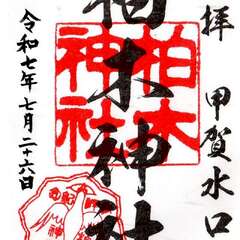 拝
甲賀水口
柏木神社
柏木
神社
令和七年七月二十六日